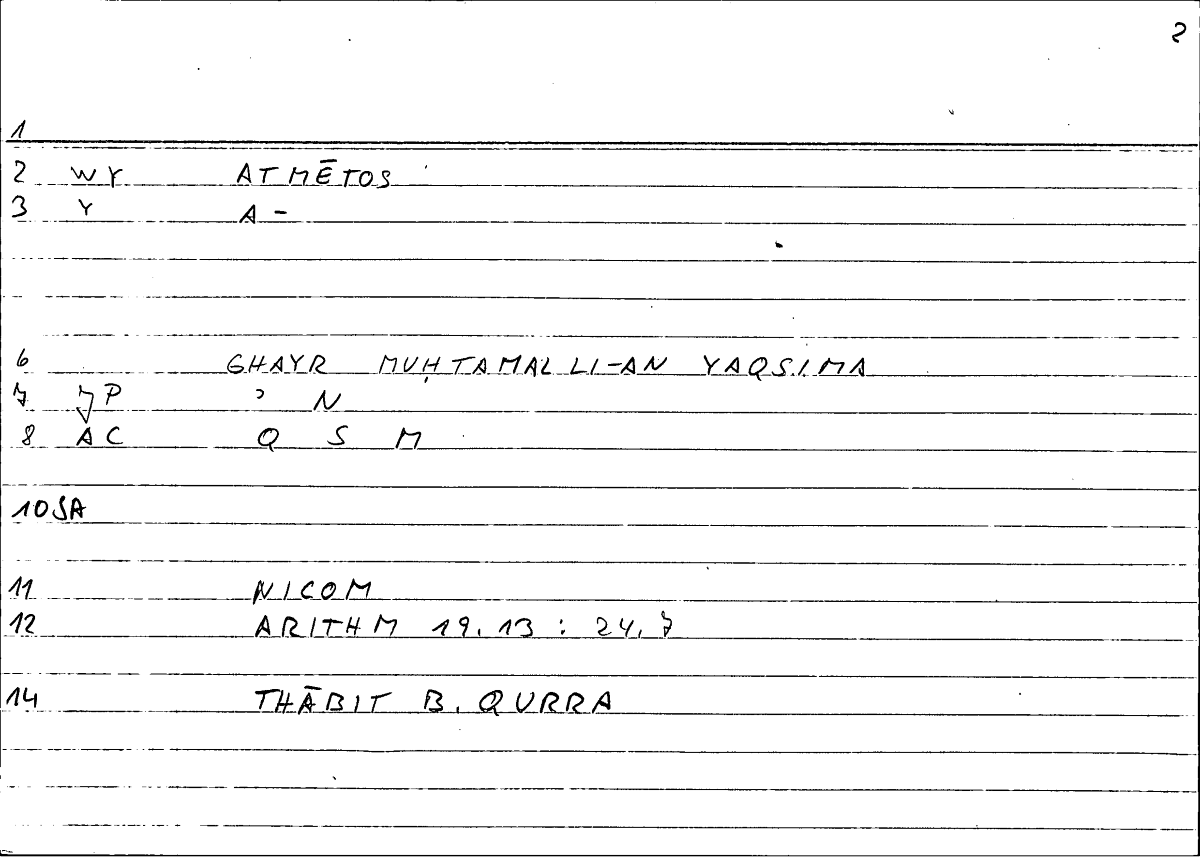 2
1
2 WY ATMĒTOS
3 Y A -
6 GHAYR MUḤTAMAL LI-AN YAQSIMA
7 JP ʾ N
8 AC Q S M
10 SA
11 NICOM
12 ARITHM 19.13 : 24.7
14 THĀBIT B. QURRA